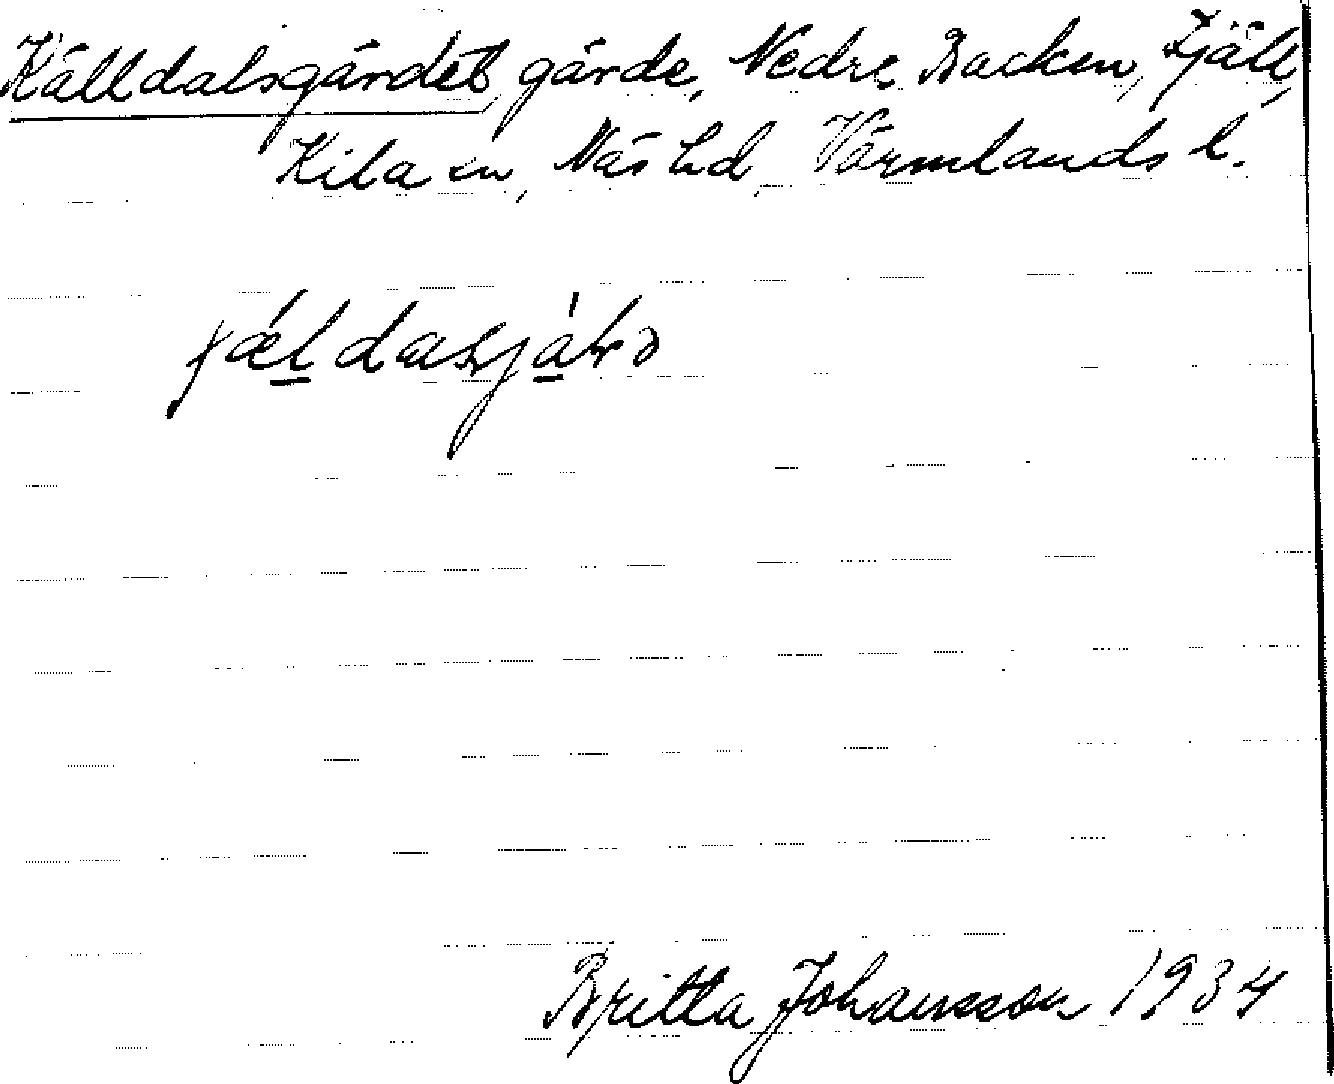 Källdalsgärdet, gärde, Nedre Backen, Fjäll,
Kila sn, Näs hd, Värmlands l.
Britta Johansson 1934